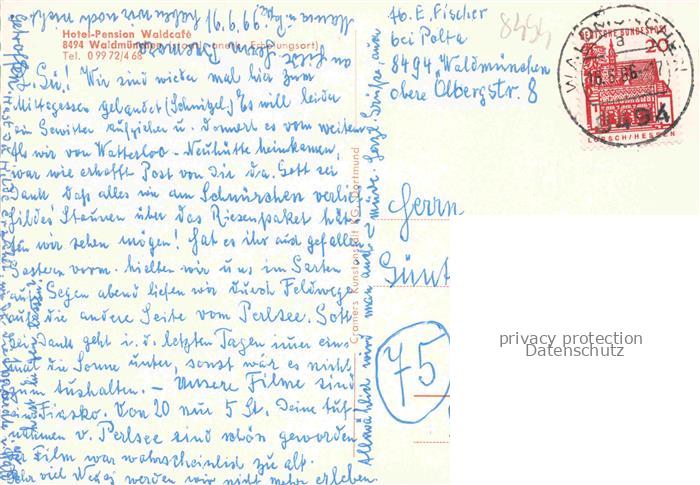 Hotel-Pension Waldcafé
8494 Waldmünchen
Tel. 0 99 72/4 68
16.6.66
Wir sind wieder mal hier zum
Mittagessen gelandet (Schnitzel) Es will leider
ein Gewitter aufziehen u. donnert es vom weiten
Als wir von Watterloo-Neuhütte heimkamen,
war wie erhofft Post von Dir da. Gott sei
Dank daß alles wie am Schnürchen verlief
Hildes Staunen über das Riesenpaket hät-
ten wir sehen mögen! Hat es ihr auch gefallen
Gestern vorm. hielten wir uns im Garten
auf. Gegen abend liefen wir durch Feldwege
auf die andere Seite vom Perlsee. Gott
sei Dank geht i. d. letzten Tagen immer ein-
mal die Sonne unter, sonst wär es nicht
zum aushalten. – Unsere Filme sind
ein Fiasko. Von 20 nur 5 St. Deine Auf-
nahmen v. Perlsee sind schön geworden
Der Film war wahrscheinlich zu alt.
Sehr viel Neues werden wir nicht mehr erleben.
Allmählich wird man auch müde. Herzl. Grüße, auch
Cramers Kunstanstalt KG, Dortmund
Ab. E. Fischer
bei Polta
8494 Waldmünchen
obere Ölbergstr. 8
8494
DEUTSCHE BUNDESPOST
20
LORSCH/HESSEN
WALDMÜNCHEN
a
16.6.66
8494
Herrn
Günt
75
privacy protection
Datenschutz